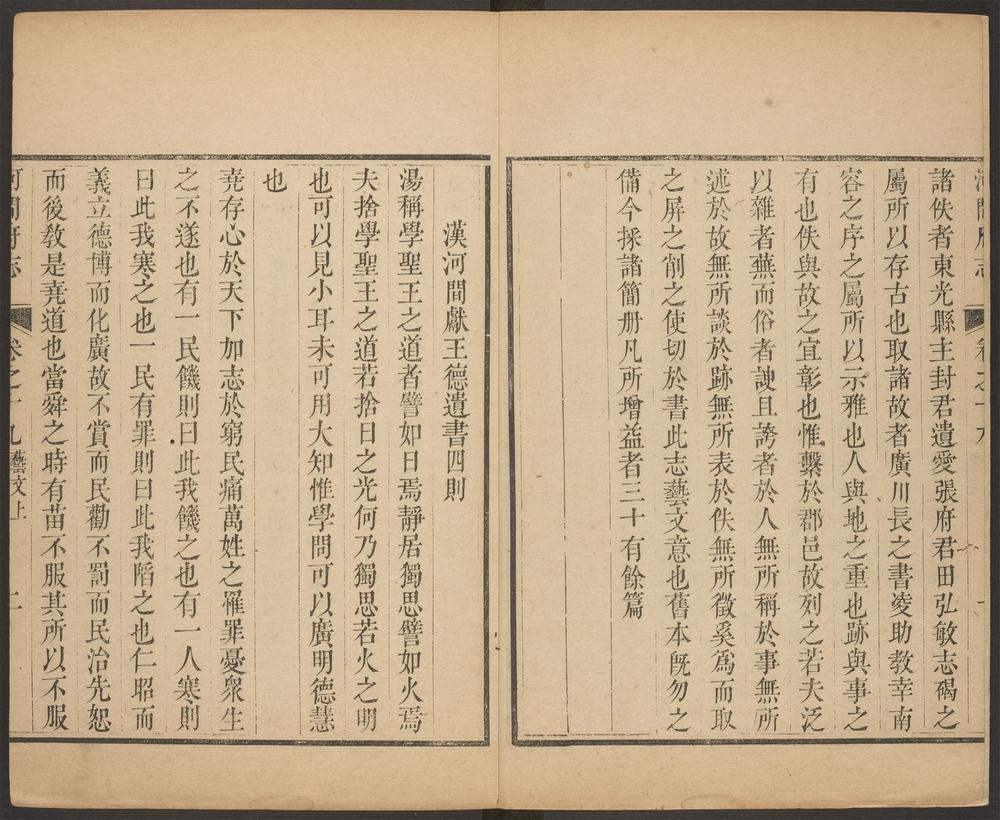 諸佚者東光縣主封君遺愛張府君田弘敏志碣之
屬所以存古也取諸故者廣川長之書凌助教幸南
容之序之屬所以示雅也人與地之重也跡與事之
有也佚與故之宜彰也惟繫於郡邑故列之若夫泛
以雜者蕪而俗者諛且誇者於人無所稱於事無所
述於故無所談於跡無所表於佚無所徵奚為而取
之屏之削之使切於書此志藝文意也舊本既勿之
備今採諸簡册凡所增益者三十有餘篇
漢河間獻王德遺書四則
湯稱學聖王之道者譬如日焉靜居獨思譬如火焉
夫捨學聖王之道若捨日之光何乃獨思若火之明
也可以見小耳未可用大知惟學問可以廣明德慧
也
堯存心於天下加志於窮民痛萬姓之罹罪憂衆生
之不遂也有一民饑則曰此我饑之也有一人寒則
曰此我寒之也一民有罪則曰此我陷之也仁昭而
義立德博而化廣故不賞而民勸不罰而民治先恕
而後敎是堯道也當舜之時有苗不服其所以不服
河間府志 卷之十九 藝文上 二